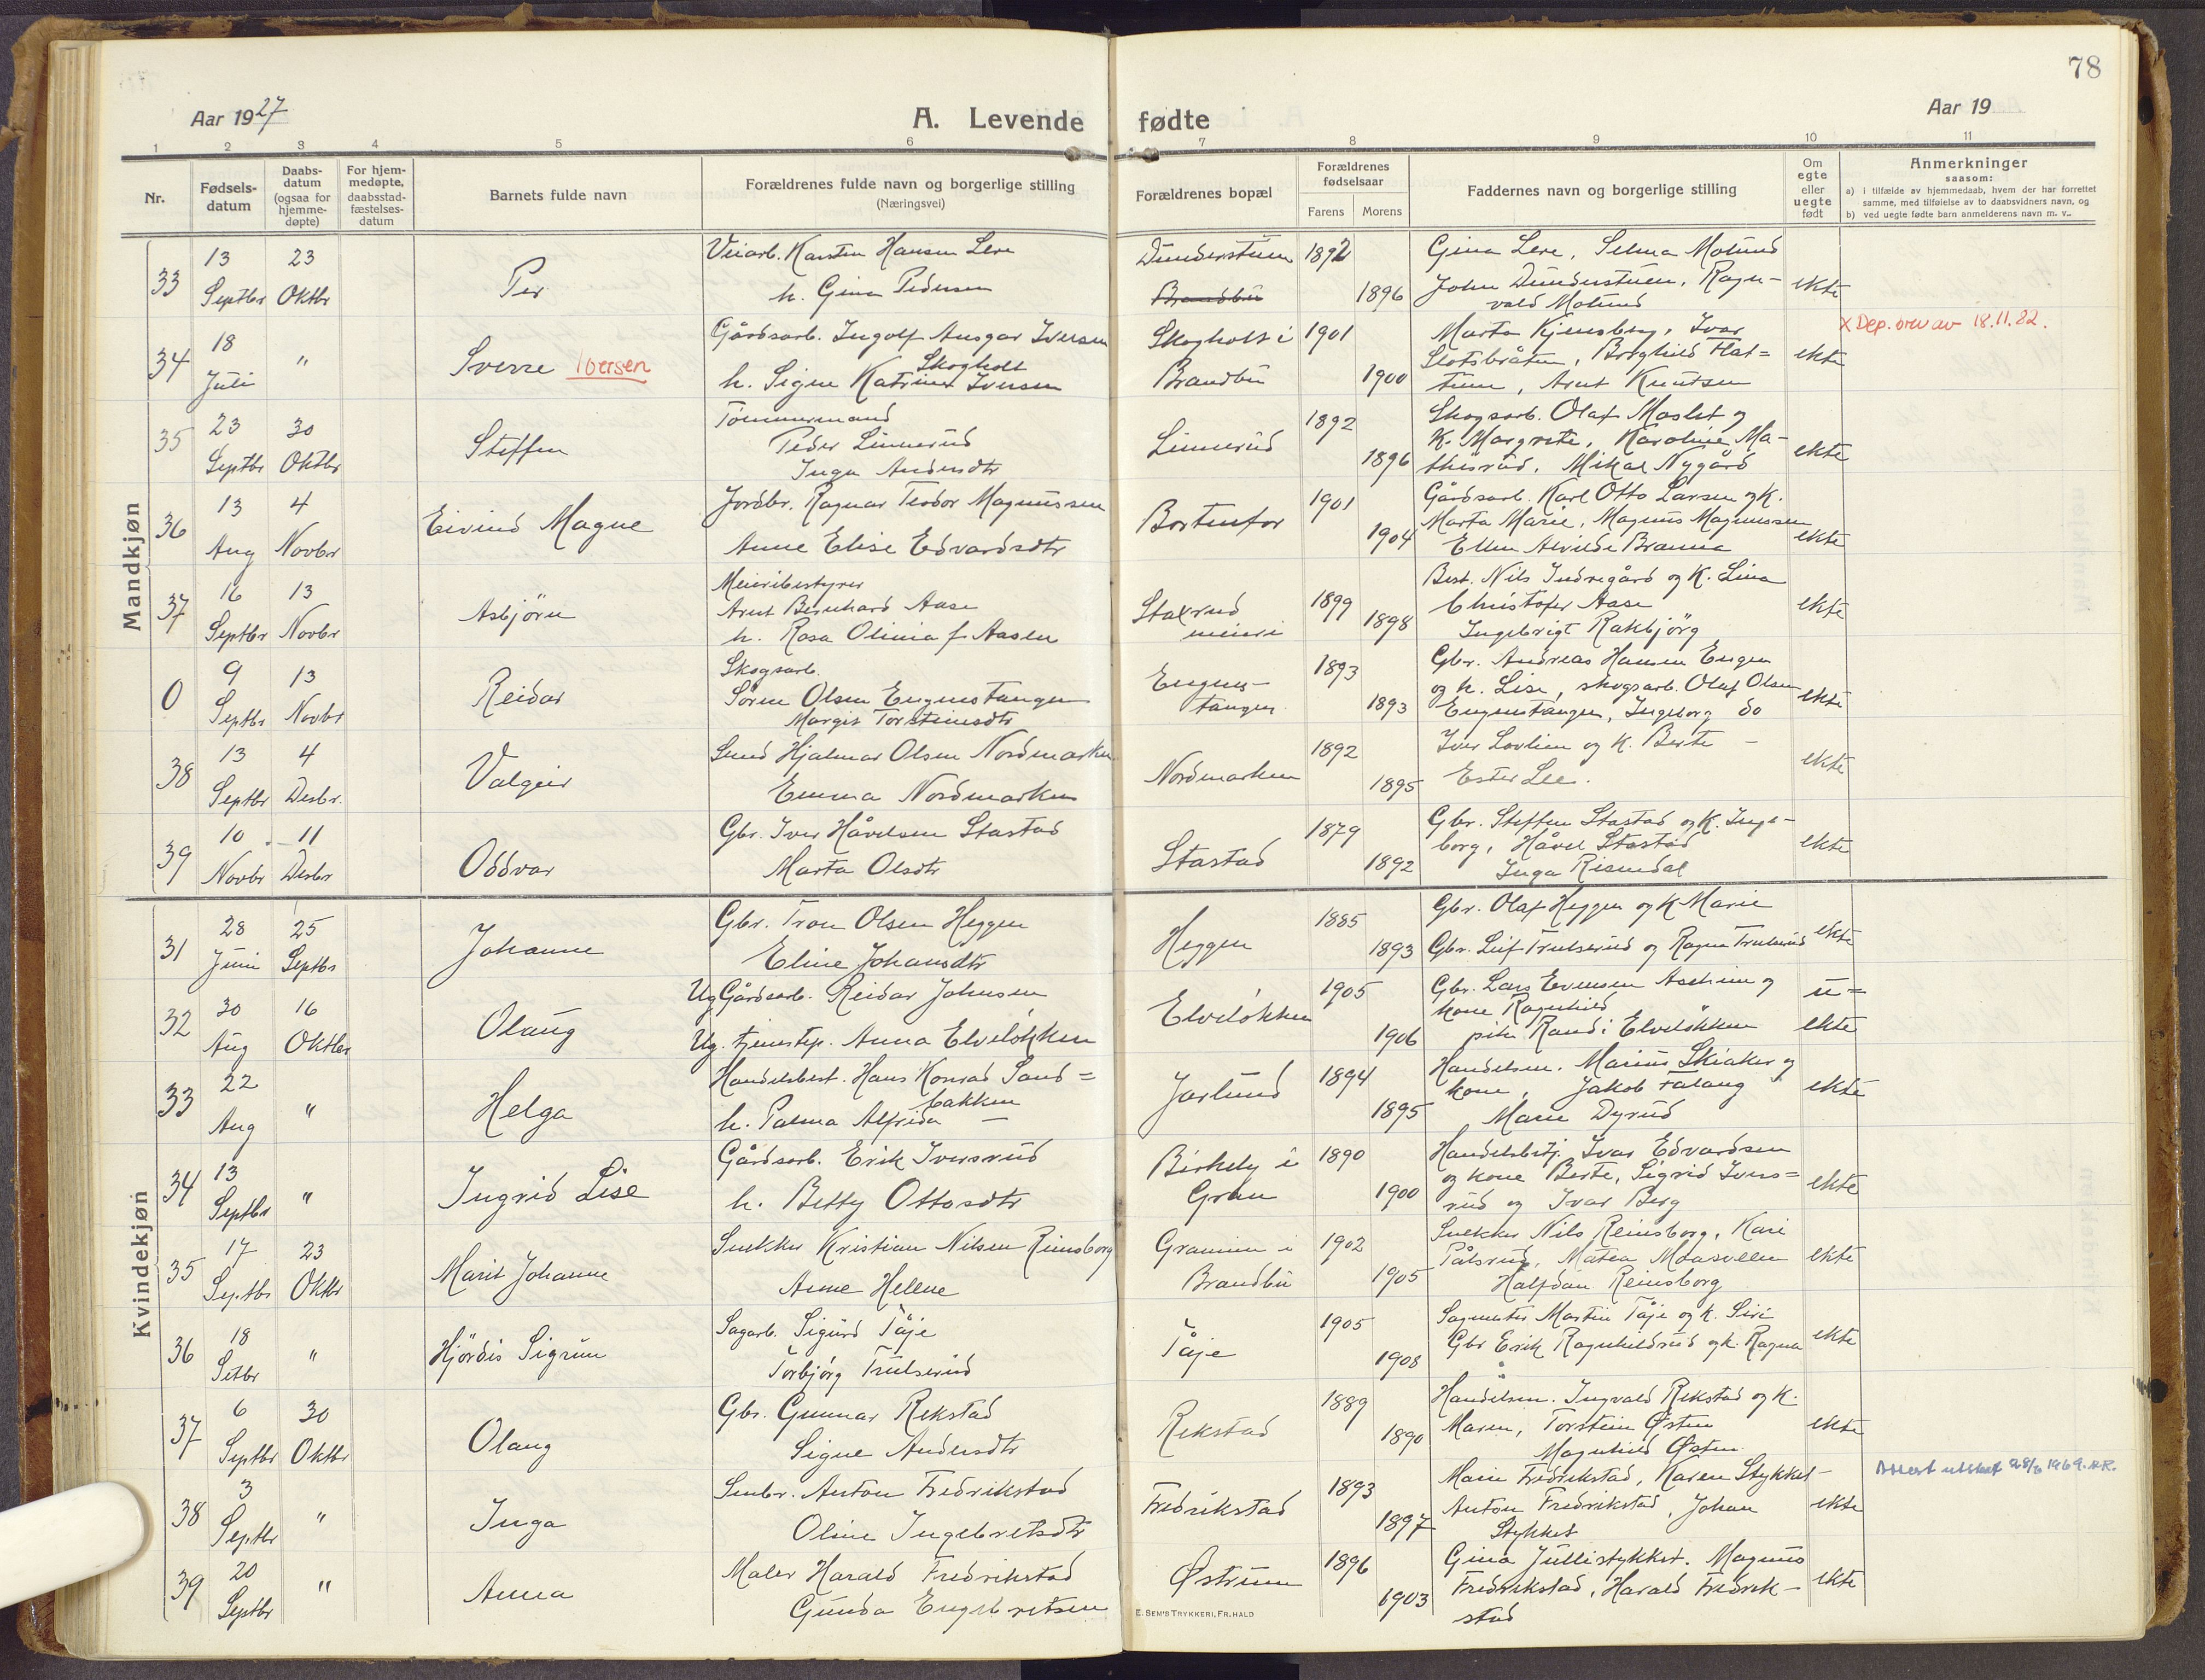 78
Aar 1927
A. Levende fødte
Aar 19
1 2 3 4 5 6 7 8 9 10 11
Nr.
Fødsels-
datum
Daabs-
datum
(ogsaa for
hjemme-
døpte)
For hjem-
medøpte,
daabsstad-
fæstelses-
datum
Barnets fulde navn
Forældrenes fulde navn og borgerlige stilling
(Næringsvei)
Forældrenes bopæl
Forældrenes
fødselsaar
Farens Morens
Faddernes navn og borgerlige stilling
Om
egte
eller
uegte
født
Anmerkninger
saasom:
a) i tilfælde av hjemmedaab, hvem der har forrettet
samme, med tilføielse av to daabsvidners navn, og
b) ved uegte fødte barn anmelderens navn m. v.
Mandkjøn
33
13 Septbr
23 Oktbr
Per
Veiarb. Karsten Hansen Lere
h. Gina Pedersen
Dunderstuen
Brandbu
1892
1896
Gina Lere, Selma Molund
John Dunderstuen, Ragn-
vald Molund
ekte
34
18 Juli
"
Sverre Iversen
Gårdsarb. Ingolf Ansgar Iversen
Skogholt
h. Signe Katrine Iversen
Skogholt i
Brandbu
1901
1900
Marta Kjensberg, Ivar
Slotsbråten, Borghild Flat-
tum, Arnt Knutsen
ekte
x Dep. brev av 18.11.82.
35
23 Septbr
30 Oktbr
Steffen
Tømmermand
Peder Linnerud
Inga Andersdtr
Linnerud
1892
1896
Skogsarb. Olaf Moslet og
K. Margrete, Karoline Ma-
thisrud, Mikal Nygård
ekte
36
13 Aug
4 Novbr
Eivind Magne
Jordbr. Ragnar Teodor Magnussen
Anne Elise Edvardsdtr
Bortenfor
1901
1904
Gårdsarb. Karl Otto Larsen og K.
Marta Marie, Magnus Magnussen
Ellen Alvilde Branna
ekte
37
16 Septbr
13 Novbr
Asbjörn
Meieribestyrer
Arnt Bernhard Aase
h. Rosa Olinia f Aasen
Staxrud
meieri
1899
1898
Best. Nils Indregård og K. Lina
Christofer Aase
Ingebrigt Rakbjörg
ekte
0
9 Septbr
13 Novbr
Reidar
Skogsarb.
Sören Olsen Engnestangen
Margit Torsteinsdtr
Engnes-
tangen
1893
1893
Gbr. Andreas Hansen Engen
og h. Lise, skogsarb. Olaf Olsen
Engnestangen, Ingeborg do
ekte
38
13 Septbr
4 Desbr.
Valgeir
Smed Hjalmar Olsen Nordmarken
Emma Nordmarken
Nordmarken
1892
1895
Iver Lovlien og K. Berte –
Ester Lee.
ekte
39
10 Novbr
11 Desbr
Oddvar
Gbr. Iver Håvelsen Stastad
Marta Olsdtr
Stastad
1879
1892
Gbr. Steffen Stastad og K. Inge-
borg, Håvel Stastad
Inga Risendal
ekte
Kvindekjøn
31
28 Juni
25 Septbr
Johanne
Gbr. Tron Olsen Heggen
Eline Johansdtr
Heggen
1885
1893
Gbr. Olaf Heggen og K Marie
Gbr. Leif Trulserud og Ragna Trulserud
ekte
32
30 Aug
16 Oktbr
Olaug
Ug Gårdsarb. Reidar Johnsen
Ug. tjenestep. Anna Elvelökken
Elvelökken
1905
1906
Gbr. Lars Evensen Ascheim og
kone Ragnhild
pike Randi Elvelökken
u=
ekte
33
22 Aug
"
Helga
Handelsbest. Hans Konrad Sand=
bakken
h. Palma Alfrida –
Jarlund
1894
1895
Handelsm. Marius Skiaker og
kone, Jakob Falang
Marie Dyrud
ekte
34
13 Septbr
"
Ingrid Lise
Gårdsarb. Erik Iversrud
h. Betty Ottosdtr
Birkely i
Gran
1890
1900
Handelsbetj. Ivar Edvardsen
og kone Berte, Sigrid Ivers=
rud og Ivar Berg
ekte
35
17 Septbr
23 Oktbr
Marit Johanne
Snekker Kristian Nilsen Reinsborg
Anne Helene
Granum i
Brandbu
1902
1905
Snekker Nils Reinsborg, Kari
Pålsrud, Matea Moasveen
Halfdan Reinsborg
ekte
36
18 Setbr
"
Hjördis Sigrun
Sagarb. Sigurd Tåje
Torbjörg Trulserud
Tåje
1905
1908
Sagmester Martin Tåje og K. Siri
Gbr Erik Ragnhildrud og k. Ragna
ekte
37
6 Septbr
30 Oktbr
Olaug
Gbr. Gunnar Rekstad
Signe Andersdtr
Rekstad
1889
1890
Handelsm. Ingvald Rekstad og K.
Maren, Torstein Østen
Magnhild Østen
ekte
38
3 Septbr
"
Inga
Smbr. Anton Fredrikstad
Oline Ingebretsdtr
Fredrikstad
1893
1897
Marie Fredrikstad, Karen Stykket-
Anton Fredrikstad, Johan
Stykket
ekte
Attest utstedt 28/8 1969.
39
20 Septbr
"
Anna
Maler Harald Fredrikstad
Gunda Engebretsen
Østrum
1896
1903
Gina Jullistykket. Magnus
Fredrikstad, Harald Fredrik-
stad
ekte
E. SEM'S TRYKKERI, FR.HALD